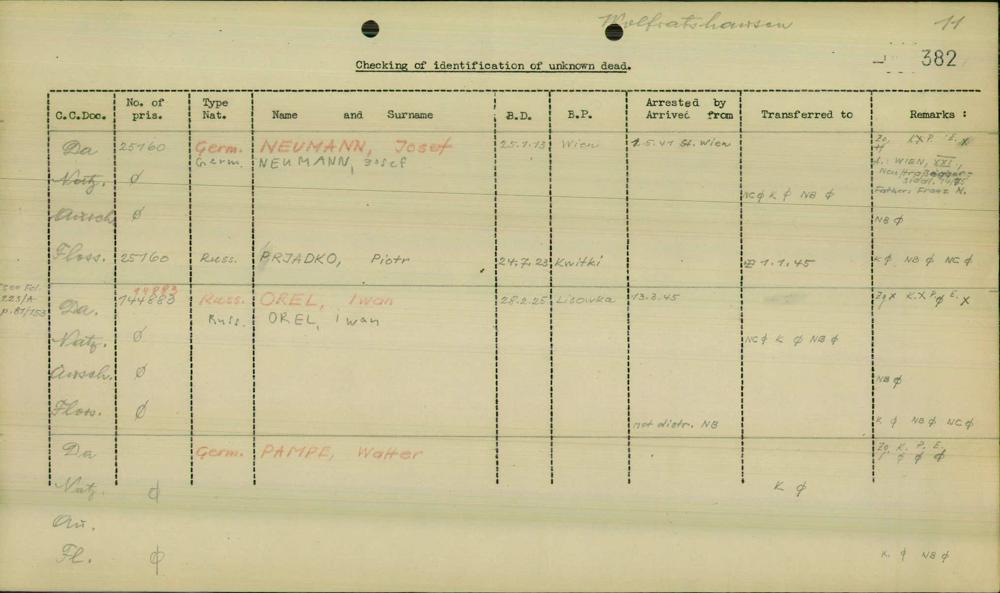 Wolfratshausen 11
382
Checking of identification of unknown dead.
C.C.Doc. No. of pris. Type Nat. Name and Surname B.D. B.P. Arrested by Arrived from Transferred to Remarks :
Da 25760 Germ. NEUMANN, Josef 25.1.13 Wien 1.5.41 St. Wien
Germ. NEUMANN, Josef
A.: WIEN, XXI.,
Father: Franz N.
Natz. ∅ NC∅ K ∅ NB ∅
Ausch ∅ NB ∅
Floss. 25760 Russ. PRJADKO, Piotr 24.7.23 Kwitki 1.1.45 K∅ NB ∅ NC ∅
See Fol.
p.87/153
Da. 144883 144883 Russ. OREL, Iwan 28.2.25 Lisowka 13.3.45
Russ. OREL, Iwan
Natz. ∅ NC∅ K ∅ NB ∅
Ausch. ∅ NB ∅
Floss. ∅ not distr. NB K ∅ NB ∅ NC ∅
Da Germ. PAMPE, Walter
Natz. ∅ K ∅
Au.
Fl. ∅ K. ∅ NB ∅